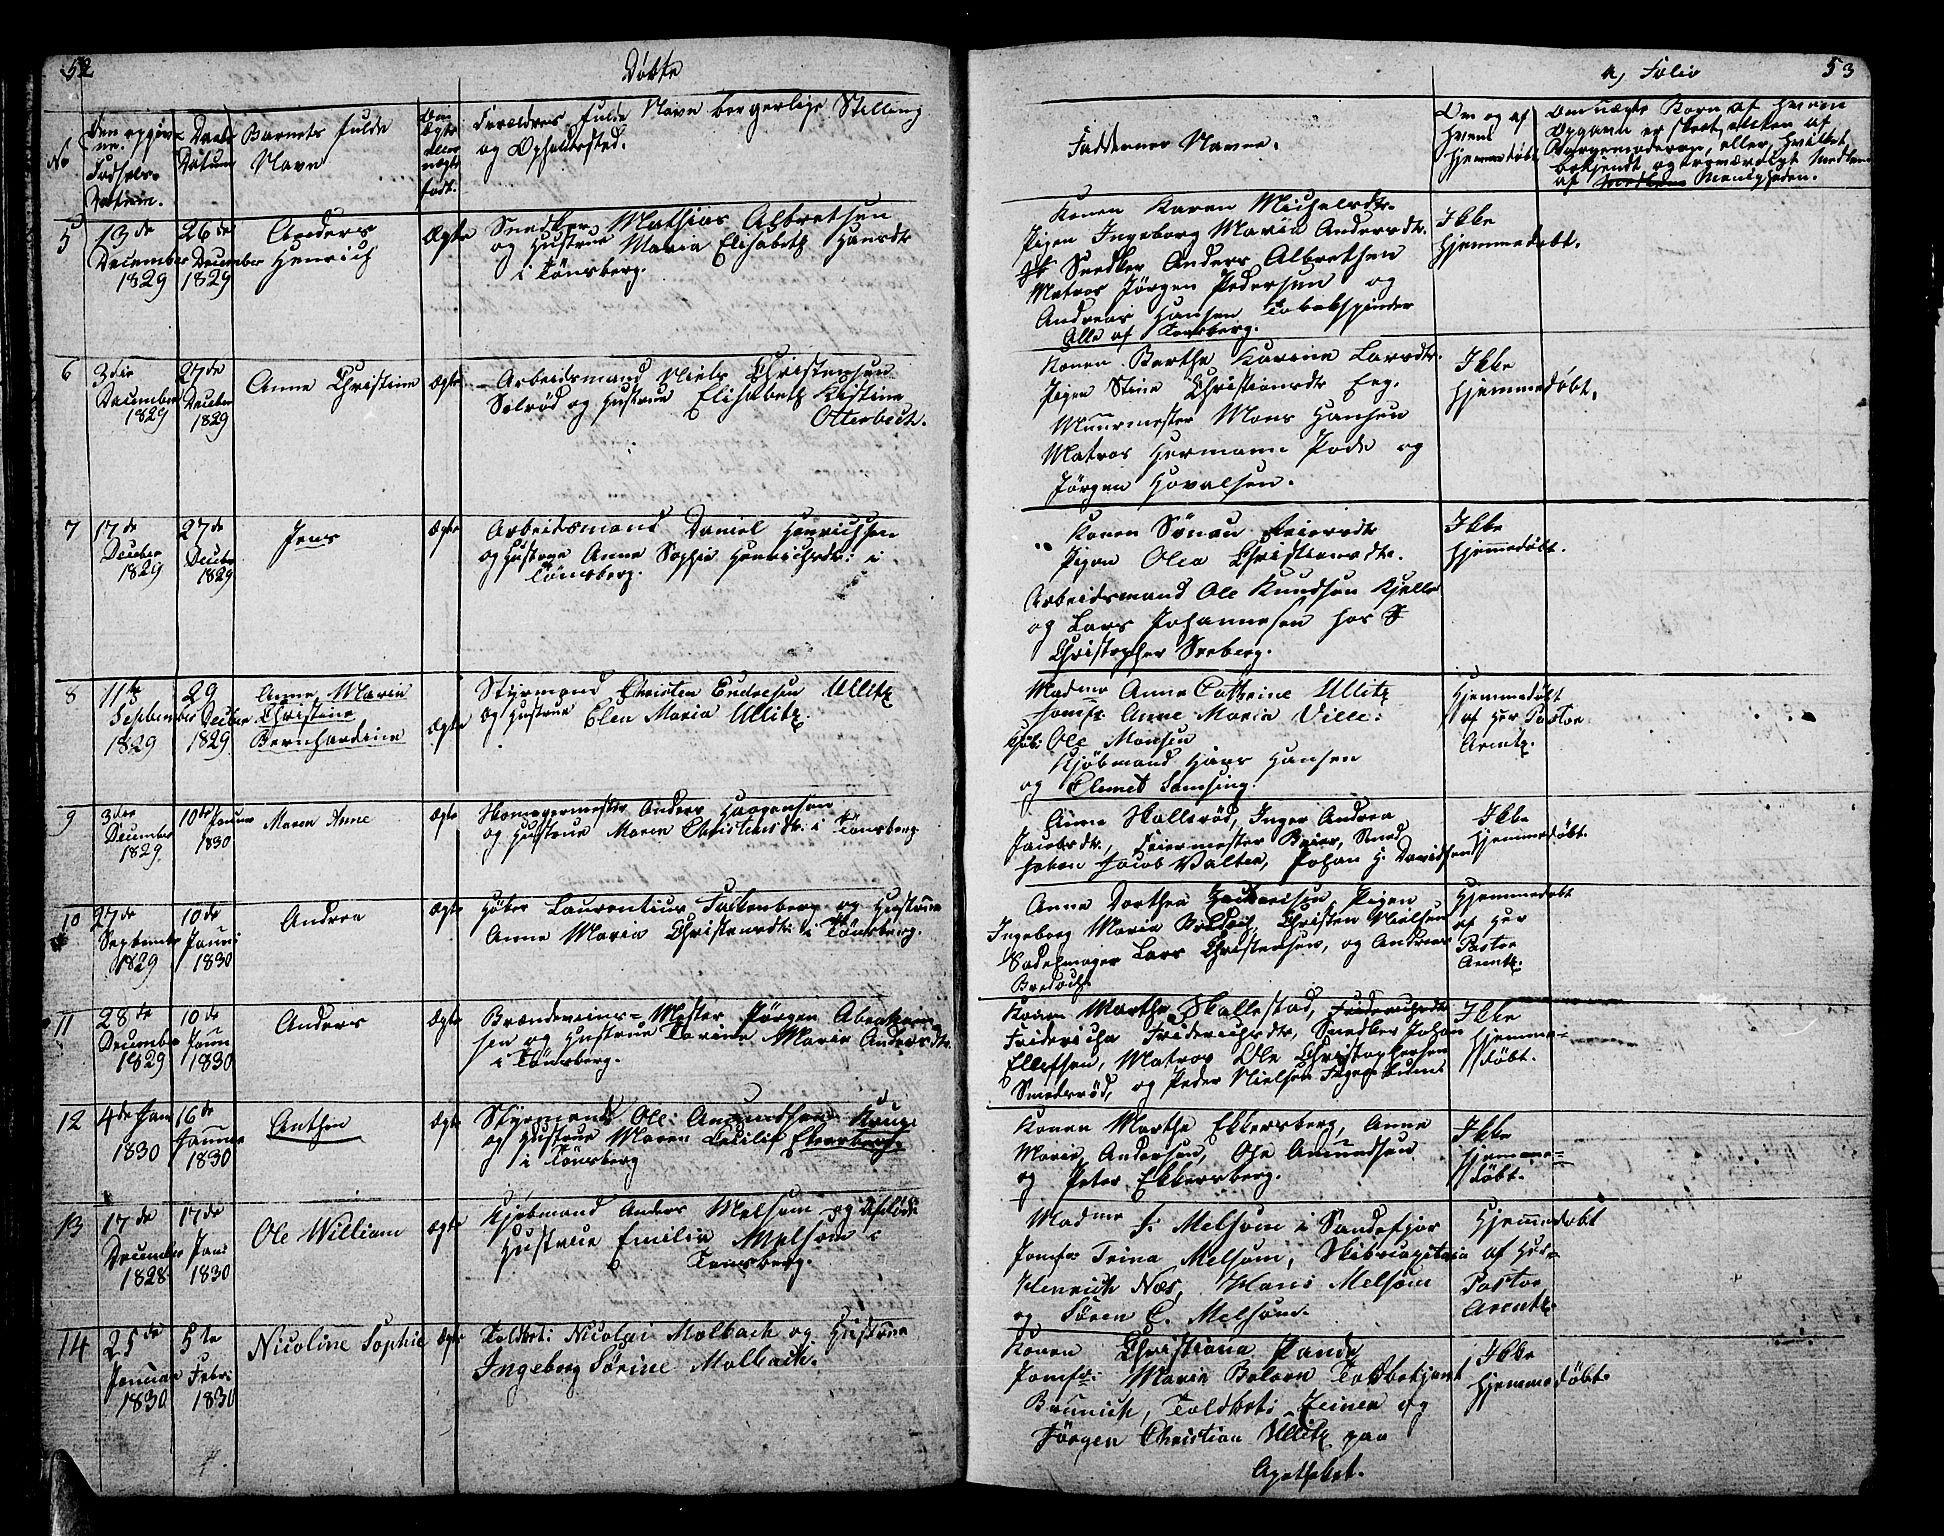 52
Døbte
No
Den opgiv=
ne
Fødsels-
Datum.
Daabs
Datum
Barnets fulde
Navn
Om
Ægte
eller
uægte
født.
Forældres fulde Navn borgerlige Stilling
og Opholdssted.
5
13de
December
1829
26de
December
1829
Anders
Henrich
Ægte
Snedker Mathias Albretsen
og Hustrue Maria Elisabeth Hansdtr
i Tönsberg.
6
3die
December
1829
27de
Decmber
1829
Anne Christine
Ægte
Arbeidsmand Niels Christensen
Solrød og Hustrue Elisabeth Kistine
Otterbech.
7
17de
December
1829
27de
Decmber
1829
Jens
Ægte
Arbeidsmand Daniel Henrichsen
og Hustrue Anne Sophie Henrichsdtr: i
Tönsberg.
8
11te
September
1829
29
Decmber
1829
Anne Marie
Christine
Bernhardine
Ægte
Styrmand Christen Endresen Ullitz
og Hustrue Elen Maria Ullitz.
9
3die
December
1829
10de Januar
1830
Maren Anne
Ægte
Skomagermester Anders Haagensen
og Hustrue Maren Christensdtr. i Tönsberg.
10
27de
September
1829
10de
Januar
1830
Andrea
Ægte
Høker Laurentius Falkenberg og Hustrue
Anne Maria Christensdtr: i Tönsberg.
11
28de
December
1829
10de
Janu
1830
Anders
Ægte
Brændeviins=Mester Jörgen Abraham
sen og Hustrue Karine Marie Andersdtr.
i Tönsberg.
12
4de Jan
1830
16de
Januar
1830
Anthon
Ægte
Styrmand Ole Amundsen Kruge
og Hustrue Maren Cecilie Ekersberg
i Tönsberg
13
17de
December
1828
17de
Janu
1830
Ole William
Ægte
Kjøbmand Anders Melsom og Afdöde
Hustrue Emilie Melsom i
Tönsberg.
14
25de
Januar
1830
5te
Febr:
1830
Nicoline Sophie
Ægte
Toldbet: Nicolai Molbach og Hustrue
Ingeborg Sörine Molbach.
a, Folio
53
Faddernes Navne.
Om og af
Hvem
Hjemmedøbt
Om uægte Børn af Hvem
Opgave er skeet, enten af
Jordemoderen, eller, hvilket
bekjendt og troværdigt Medlem
af Menigheden.
Konen Karen Michelsdtr.
Pigen Ingeborg Maria Andersdtr.
Snedker Anders Albrethsen
Matros Jörgen Pedersen og
Andreas Hansen Tobakspinder
Alle af Tønsberg.
Ikke
Hjemmedøbt.
Konen Berthe Karine Larsdtr.
Pigen Stine Christiansdtr Eeg.
Muurmester Mons Hansen
Matros Hermann Pode og
Jörgen Hovalsen.
Ikke
Hjemmedøbt.
Konen
Pigen Olea Christiansdtr.
Arbeidsmand Ole Knudsen Kjelle
og Lars Johannesen hos
Christopher Seeberg.
Ikke
Hjemmedøbt.
Madme Anne Cathrine Ullitz
Jomfr Anne Maria Wille:
Kjöb: Ole Monsen
Kjöbmand Hans Hansen
og Clemet Samsing
Hjemmedøbt
af Her Pastor
Arentz.
Anne Hallerød, Inger Andrea
Jacobsdtr., Feiermester Beier, Smed
Jacob Valter, Johan H. Davidsen
Ikke
Hjemmedøbt.
Anne Dorthea Zachariesen, Pigen
Ingeborg Maria Bredoch, Christen Nielsen
Sadelmager Lars Christensen, og Andreas
Bredoch.
Hjemmedøbt
af Her
Pastor
Arentz.
Konen Marthe Skallestad,
Fridericha Friderichsdtr, Snedker Johan
Ellefsen, Matros Ole Christophersen
Smedsrød, og Peder Nielsen
Ikke
Hjemme=
døbt.
Konen Marthe Ekkersberg, Anne
Maria Andersen, Ole Amundsen
og Peter Ekkersberg.
Ikke
Hjemme=
døbt.
Madme F: Melsom i Sandefjor
Jomfr: Trina Melsom, Skibscapitain
Henrich Næs, Hans Melsom
og Sören C. Melsom.
Hjemmedøbt
af Her=
Pastor
Arentz.
Konen Christiana Pande
Jomfr: Maria Bolern Toldbetjent
Brunich, Toldbet: Zeiner og
Jörgen Christian Ullitz paa
Apotheket.
Ikke
Hjemmedøbt.